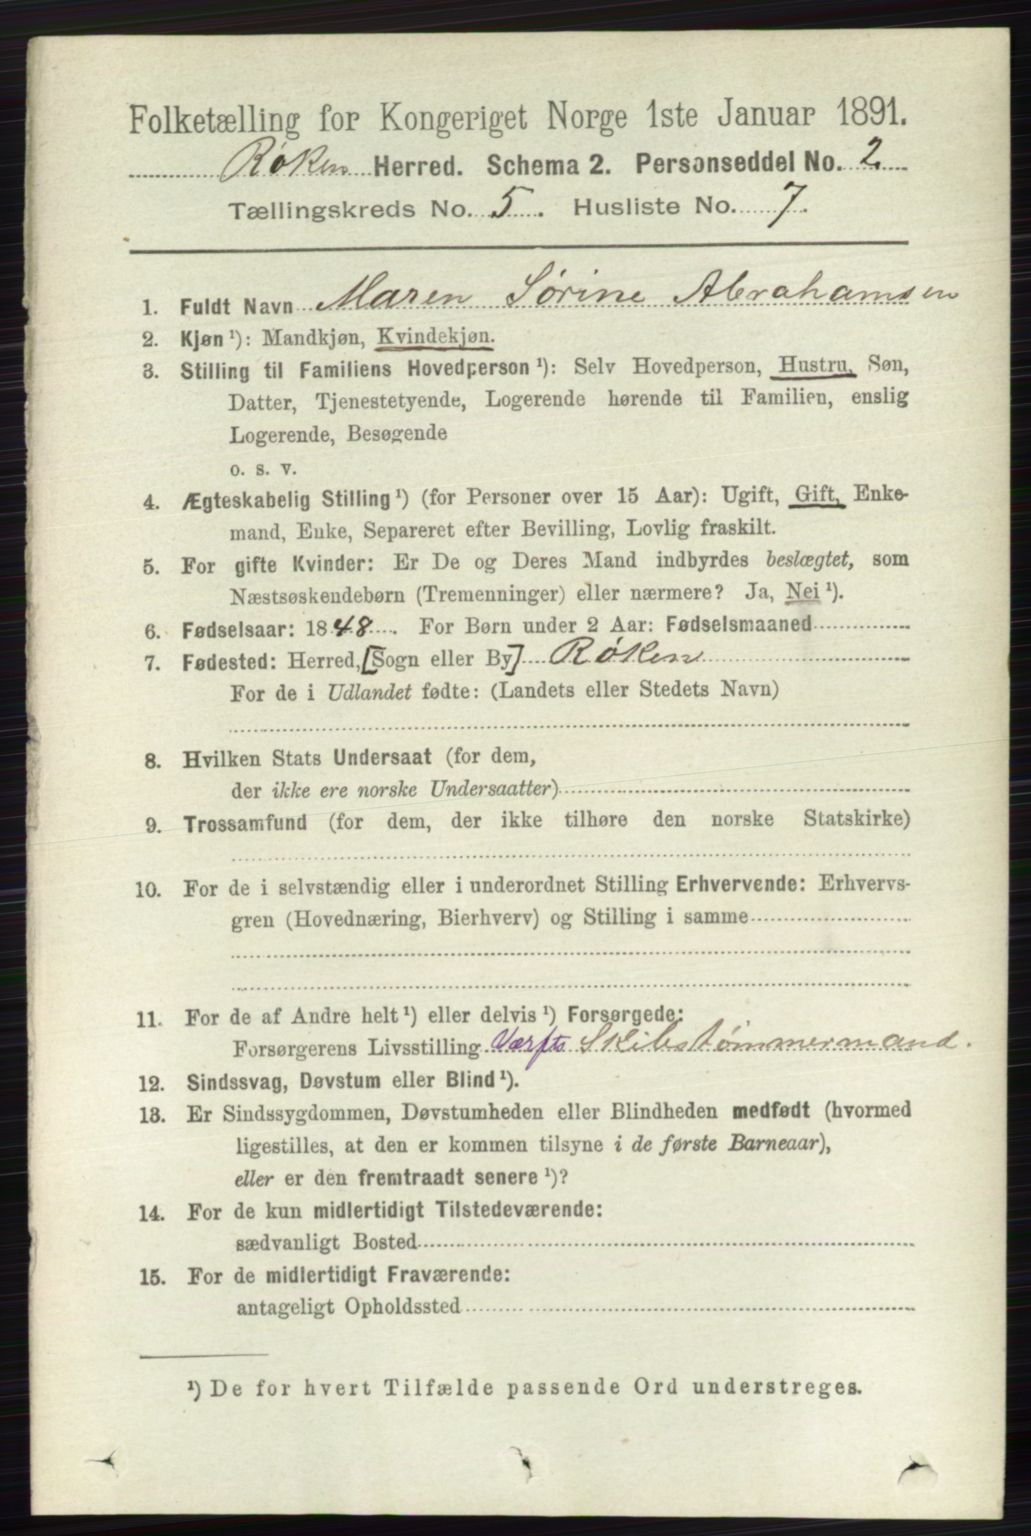 Folketælling for Kongeriget Norge 1ste Januar 1891.
Røken Herred. Schema 2. Personseddel No. 2.
Tællingskreds No. 5. Husliste No. 7.
1. Fuldt Navn Maren Sørine Abrahamsen
2. Kjøn ¹): Mandkjøn, Kvindekjøn.
3. Stilling til Familiens Hovedperson ¹): Selv Hovedperson, Hustru, Søn,
Datter, Tjenestetyende, Logerende hørende til Familien, enslig
Logerende, Besøgende
o. s. v.
4. Ægteskabelig Stilling ¹) (for Personer over 15 Aar): Ugift, Gift, Enke-
mand, Enke, Separeret efter Bevilling, Lovlig fraskilt.
5. For gifte Kvinder: Er De og Deres Mand indbyrdes beslægtet, som
Næstsøskendebørn (Tremenninger) eller nærmere? Ja, Nei ¹).
6. Fødselsaar: 1848. For Børn under 2 Aar: Fødselsmaaned
7. Fødested: Herred, [Sogn eller By] Røken
For de i Udlandet fødte: (Landets eller Stedets Navn)
8. Hvilken Stats Undersaat (for dem,
der ikke ere norske Undersaatter)
9. Trossamfund (for dem, der ikke tilhøre den norske Statskirke)
10. For de i selvstændig eller i underordnet Stilling Erhvervende: Erhvervs-
gren (Hovednæring, Bierhverv) og Stilling i samme
11. For de af Andre helt ¹) eller delvis ¹) Forsørgede:
Forsørgerens Livsstilling Værfts Skibstømmermand.
12. Sindssvag, Døvstum eller Blind ¹).
13. Er Sindssygdommen, Døvstumheden eller Blindheden medfødt (hvormed
ligestilles, at den er kommen tilsyne i de første Barneaar),
eller er den fremtraadt senere ¹)?
14. For de kun midlertidigt Tilstedeværende:
sædvanligt Bosted
15. For de midlertidigt Fraværende:
antageligt Opholdssted
¹) De for hvert Tilfælde passende Ord understreges.